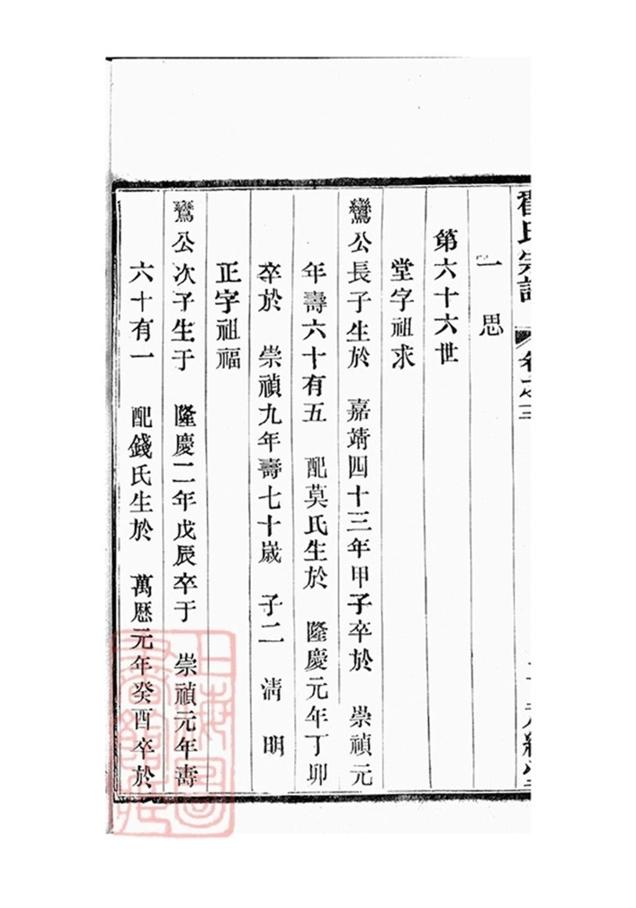 氏宗譜
卷之三
一 思
第六十六世
堂字祖求
鸞公長子生於 嘉靖四十三年甲子卒於 崇禎元
年壽六十有五 配莫氏生於 隆慶元年丁卯
卒於 崇禎九年壽七十歲 子二 清 明
正字祖福
鸞公次子生于 隆慶二年戊辰卒于 崇禎元年壽
六十有一 配錢氏生於 萬厯元年癸酉卒於